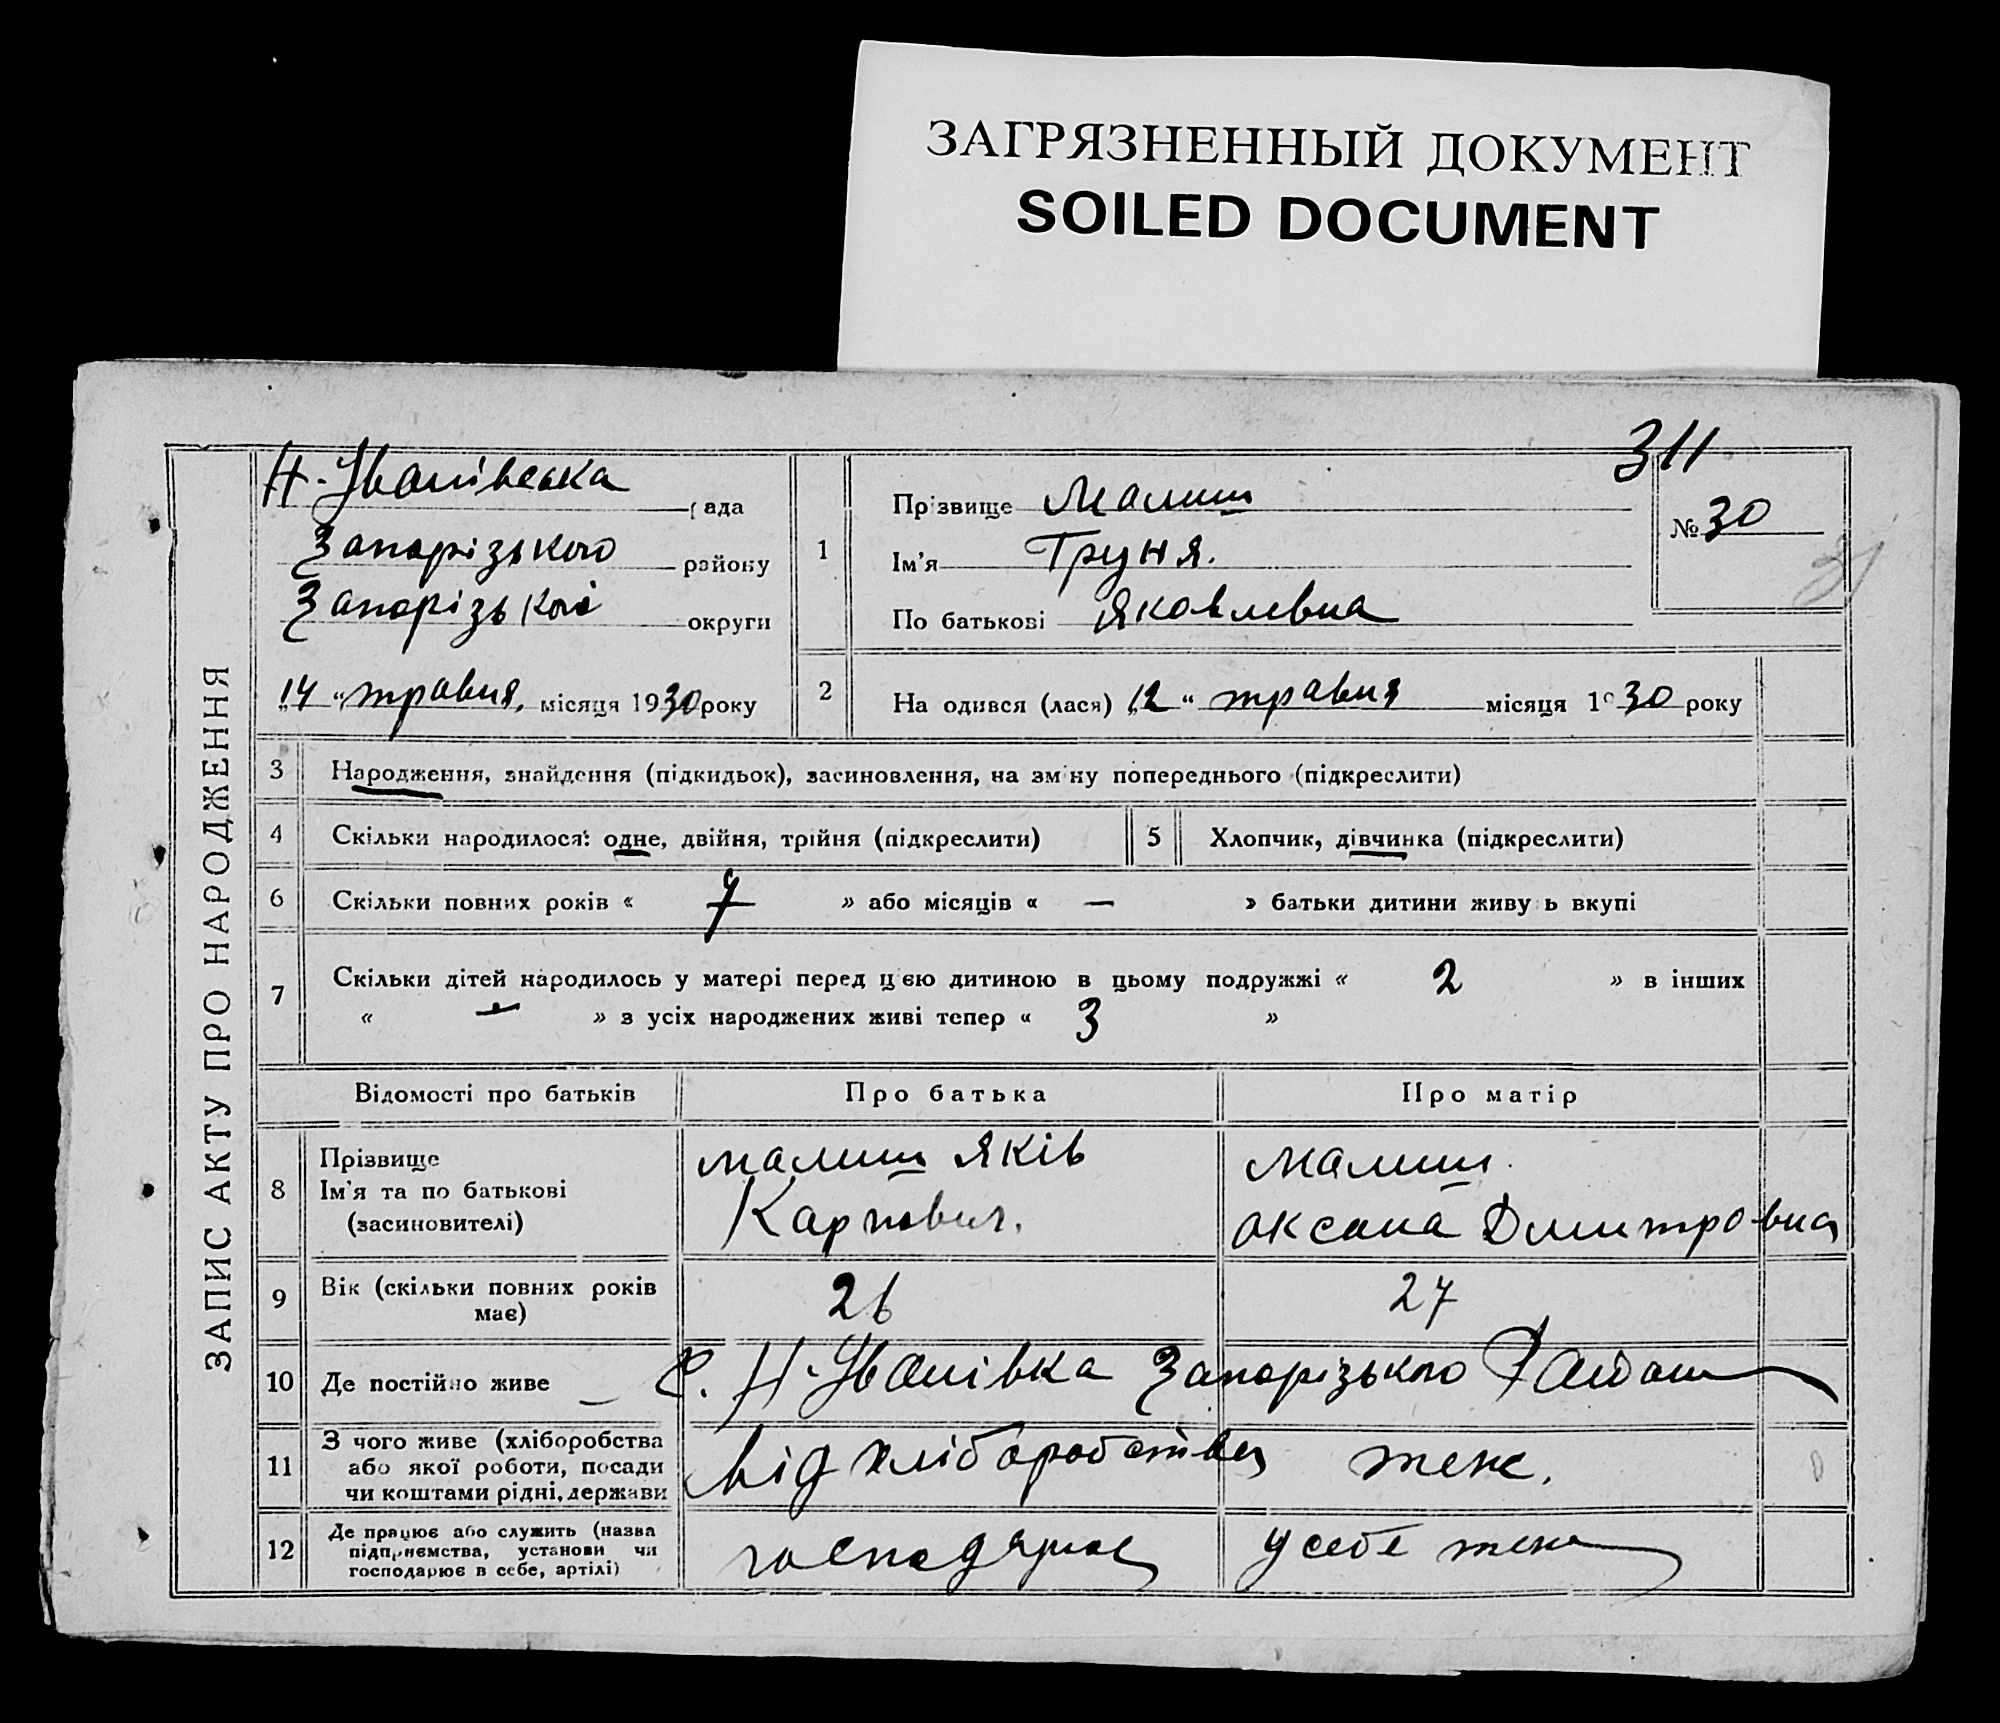 ЗАГРЯЗНЕННЫЙ ДОКУМЕНТ
SOILED DOCUMENT
311
ЗАПИС АКТУ ПРО НАРОДЖЕННЯ
Н-Іванівська рада
Запорізького району
Запорізької округи
„14“ травня, місяця 1930 року
1
Прізвище Малиш
Ім'я Груня.
По батькові Яковлевна
№ 30
31
2 На одився (лася) „12“ травня місяця 1930 року
3 Народження, знайдення (підкидьок), засиновлення, на зміну попереднього (підкреслити)
4 Скільки народилося: одне, двійня, трійня (підкреслити) 5 Хлопчик, дівчинка (підкреслити)
6 Скільки повних років « 7 » або місяців « — » батьки дитини живу ь вкупі
7 Скільки дітей народилось у матері перед цією дитиною в цьому подружжі « 2 » в інших
« — » з усіх народжених живі тепер « 3 »
Відомості про батьків Про батька Про матір
8 Прізвище
Ім'я та по батькові
(засиновителі)
малиш Яків
Карпович.
Малиш.
Оксана Дмитровна
9 Вік (скільки повних років
має)
26 27
10 Де постійно живе — с. Н-Іванівка Запорізького Району
11 З чого живе (хліборобства
або якої роботи, посади
чи коштами рідні, держави
від хліборобства теж.
12 Де працює або служить (назва
підприємства, установи чи
господарює в себе, артілі)
господарює у себе теж